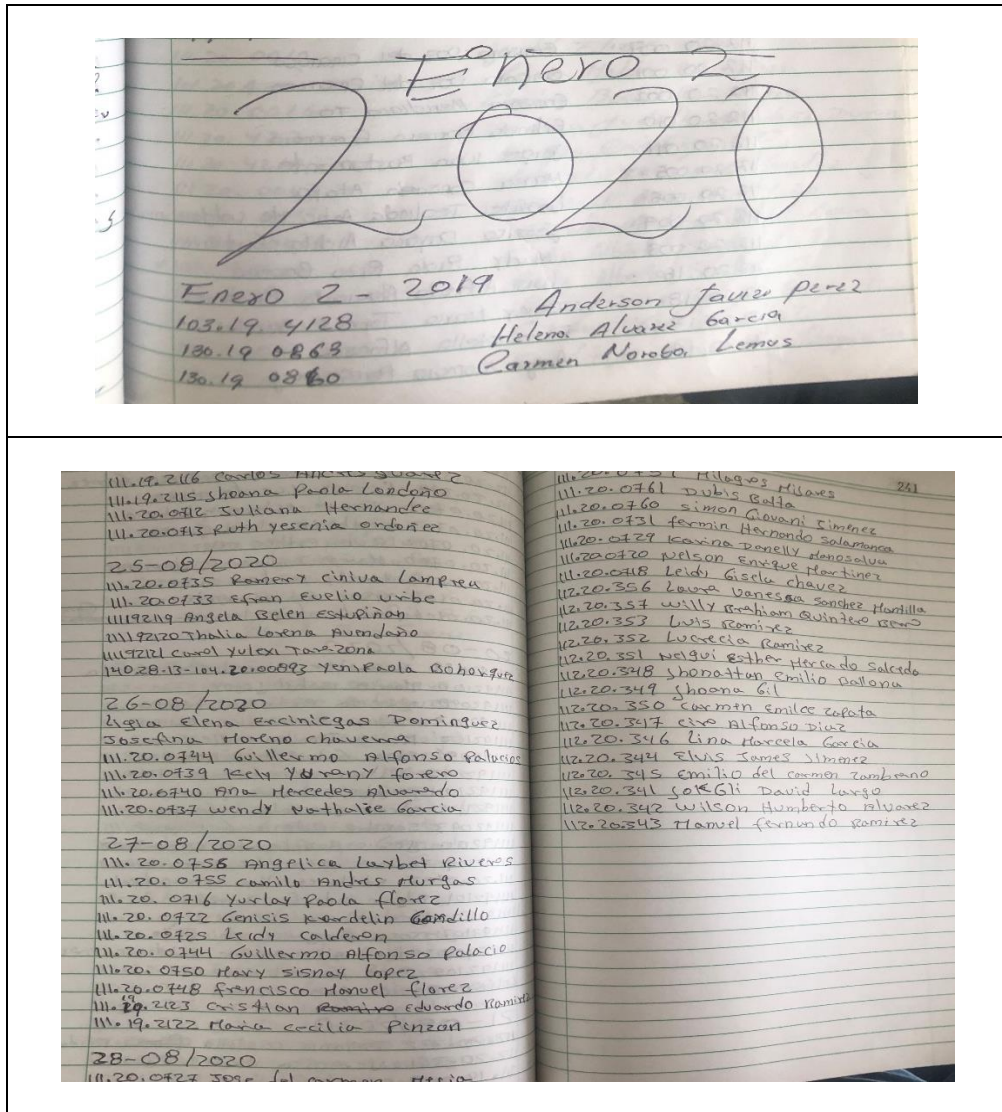 Enero 2
2020
Enero 2 - 2019
103.19 4128 Anderson Javier Perez
130.19 0863 Helena Alvarez Garcia
130.19 0860 Carmen Noroba Lemus
111.19.2116 Carlos Andres Suarez
111.19.2115 Shoana Paola Londoño
111.20.0712 Juliana Hernandez
111.20.0713 Ruth yesenia ordoñez
25-08/2020
111.20.0735 Romery cinlva Lamprea
111.20.0733 Efran Evelio uribe
111192119 Angela Belen Estupiñan
111192120 Thalia Lorena Avendaño
111192121 carol Yulexi Tarazona
140.28.13-104.20.00893 YeniPaola Bohorquez
26-08/2020
Ligia Elena Erciniegas Dominguez
Josefina Moreno chaverra
111.20.0744 Guillermo Alfonso Palacios
111.20.0739 Kely Yurany forero
111.20.0740 Ana Mercedes Alvarado
111.20.0737 wendy Nathalie Garcia
27-08/2020
111.20.0756 Angelica Laybet Riveros
111.20.0755 camilo Andres Murgas
111.20.0716 Yurlay Paola florez
111.20.0722 Genisis Kordelin Gandillo
111.20.0725 Leidy calderon
111.20.0744 Guillermo Alfonso Palacio
111.20.0750 Mary sisnay Lopez
111.20.0748 francisco Manuel florez
111.19.2123 cristian Eduardo Ramirez
111.19.2122 Maria cecilia Pinzon
28-08/2020
111.20.0727 Jose del carmen
241
Milagros Misares
111.20.0761 Dubis Balta
111.20.0760 simon Giovani Jimenez
111.20.0731 fermin Hernando Salamanca
111.20.0729 Karina Donelly Monosalva
111.20.0720 Nelson Enrique Martinez
111.20.0718 Leidy Gisela chavez
112.20.356 Laura Vanessa Sanchez Mantilla
112.20.357 Willy Brahiam Quintero
112.20.353 Luis Ramirez
112.20.352 Lucrecia Ramirez
112.20.351 Nelgui Esther Mercado Salcedo
112.20.348 Jhonattan Emilio Ballona
112.20.349 Jhoana Gil
112.20.350 carmen Emilce zapata
112.20.347 ciro Alfonso Diaz
112.20.346 Lina Marcela Garcia
112.20.344 Eluis James Jimenez
112.20.345 Emilio del carmen zambrano
112.20.341 David Largo
112.20.342 Wilson Humberto Alvarez
112.20.343 Manuel fernando Ramirez